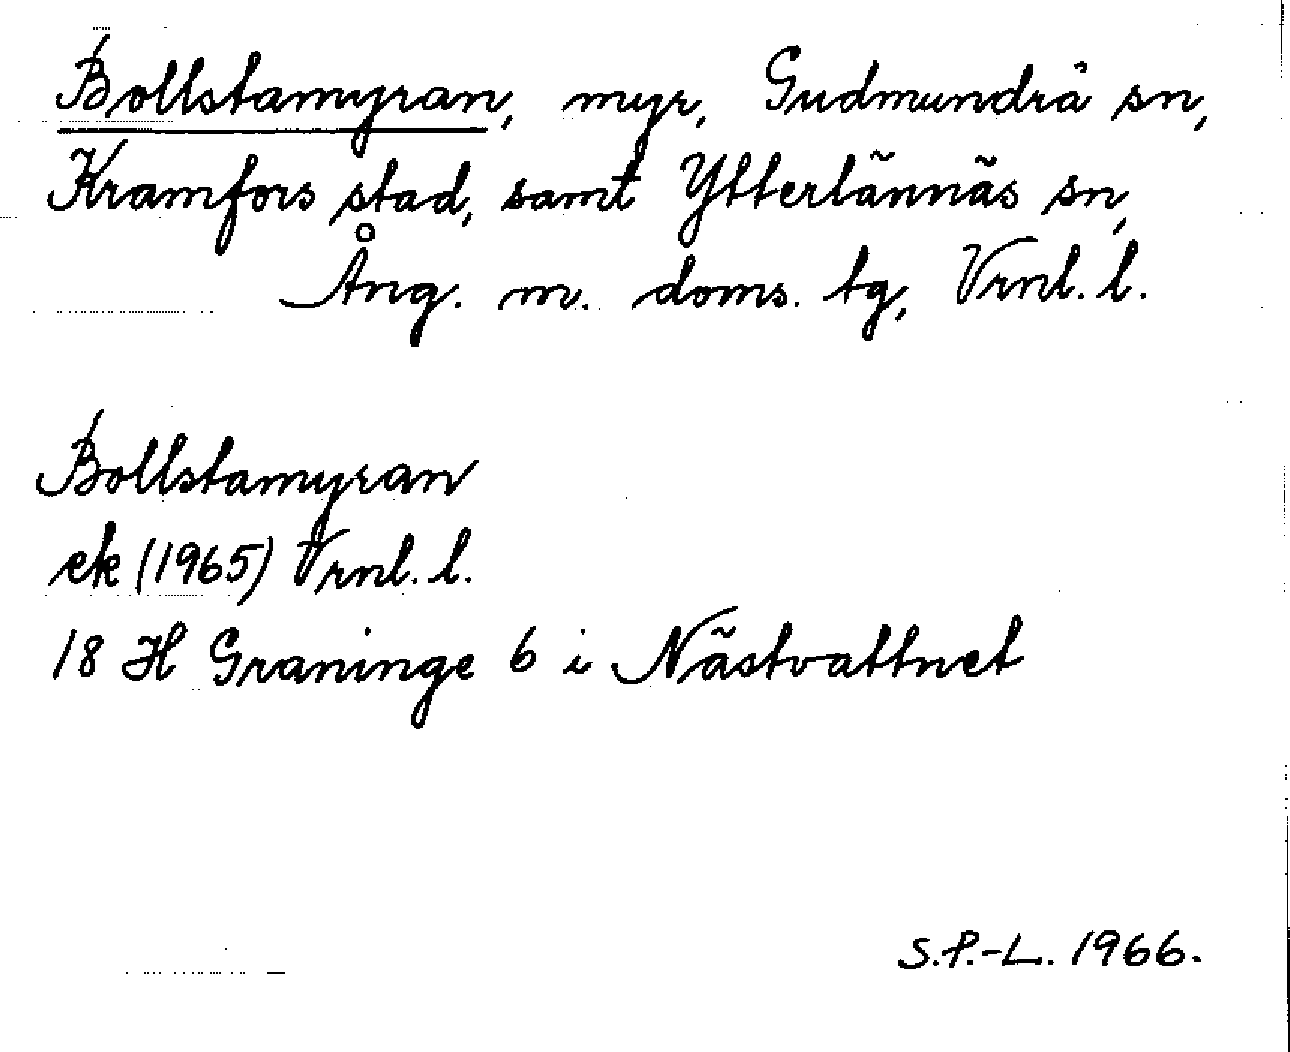 Bollstamyran, myr, Gudmundrå sn,
Kramfors stad, samt Ytterlännäs sn,
Ång. m. doms. tg, Vrnl. l.
Bollstamyran
ek (1965) Vrnl. l.
18 H Graninge 6 i Nästvattnet
S.P.-L. 1966.